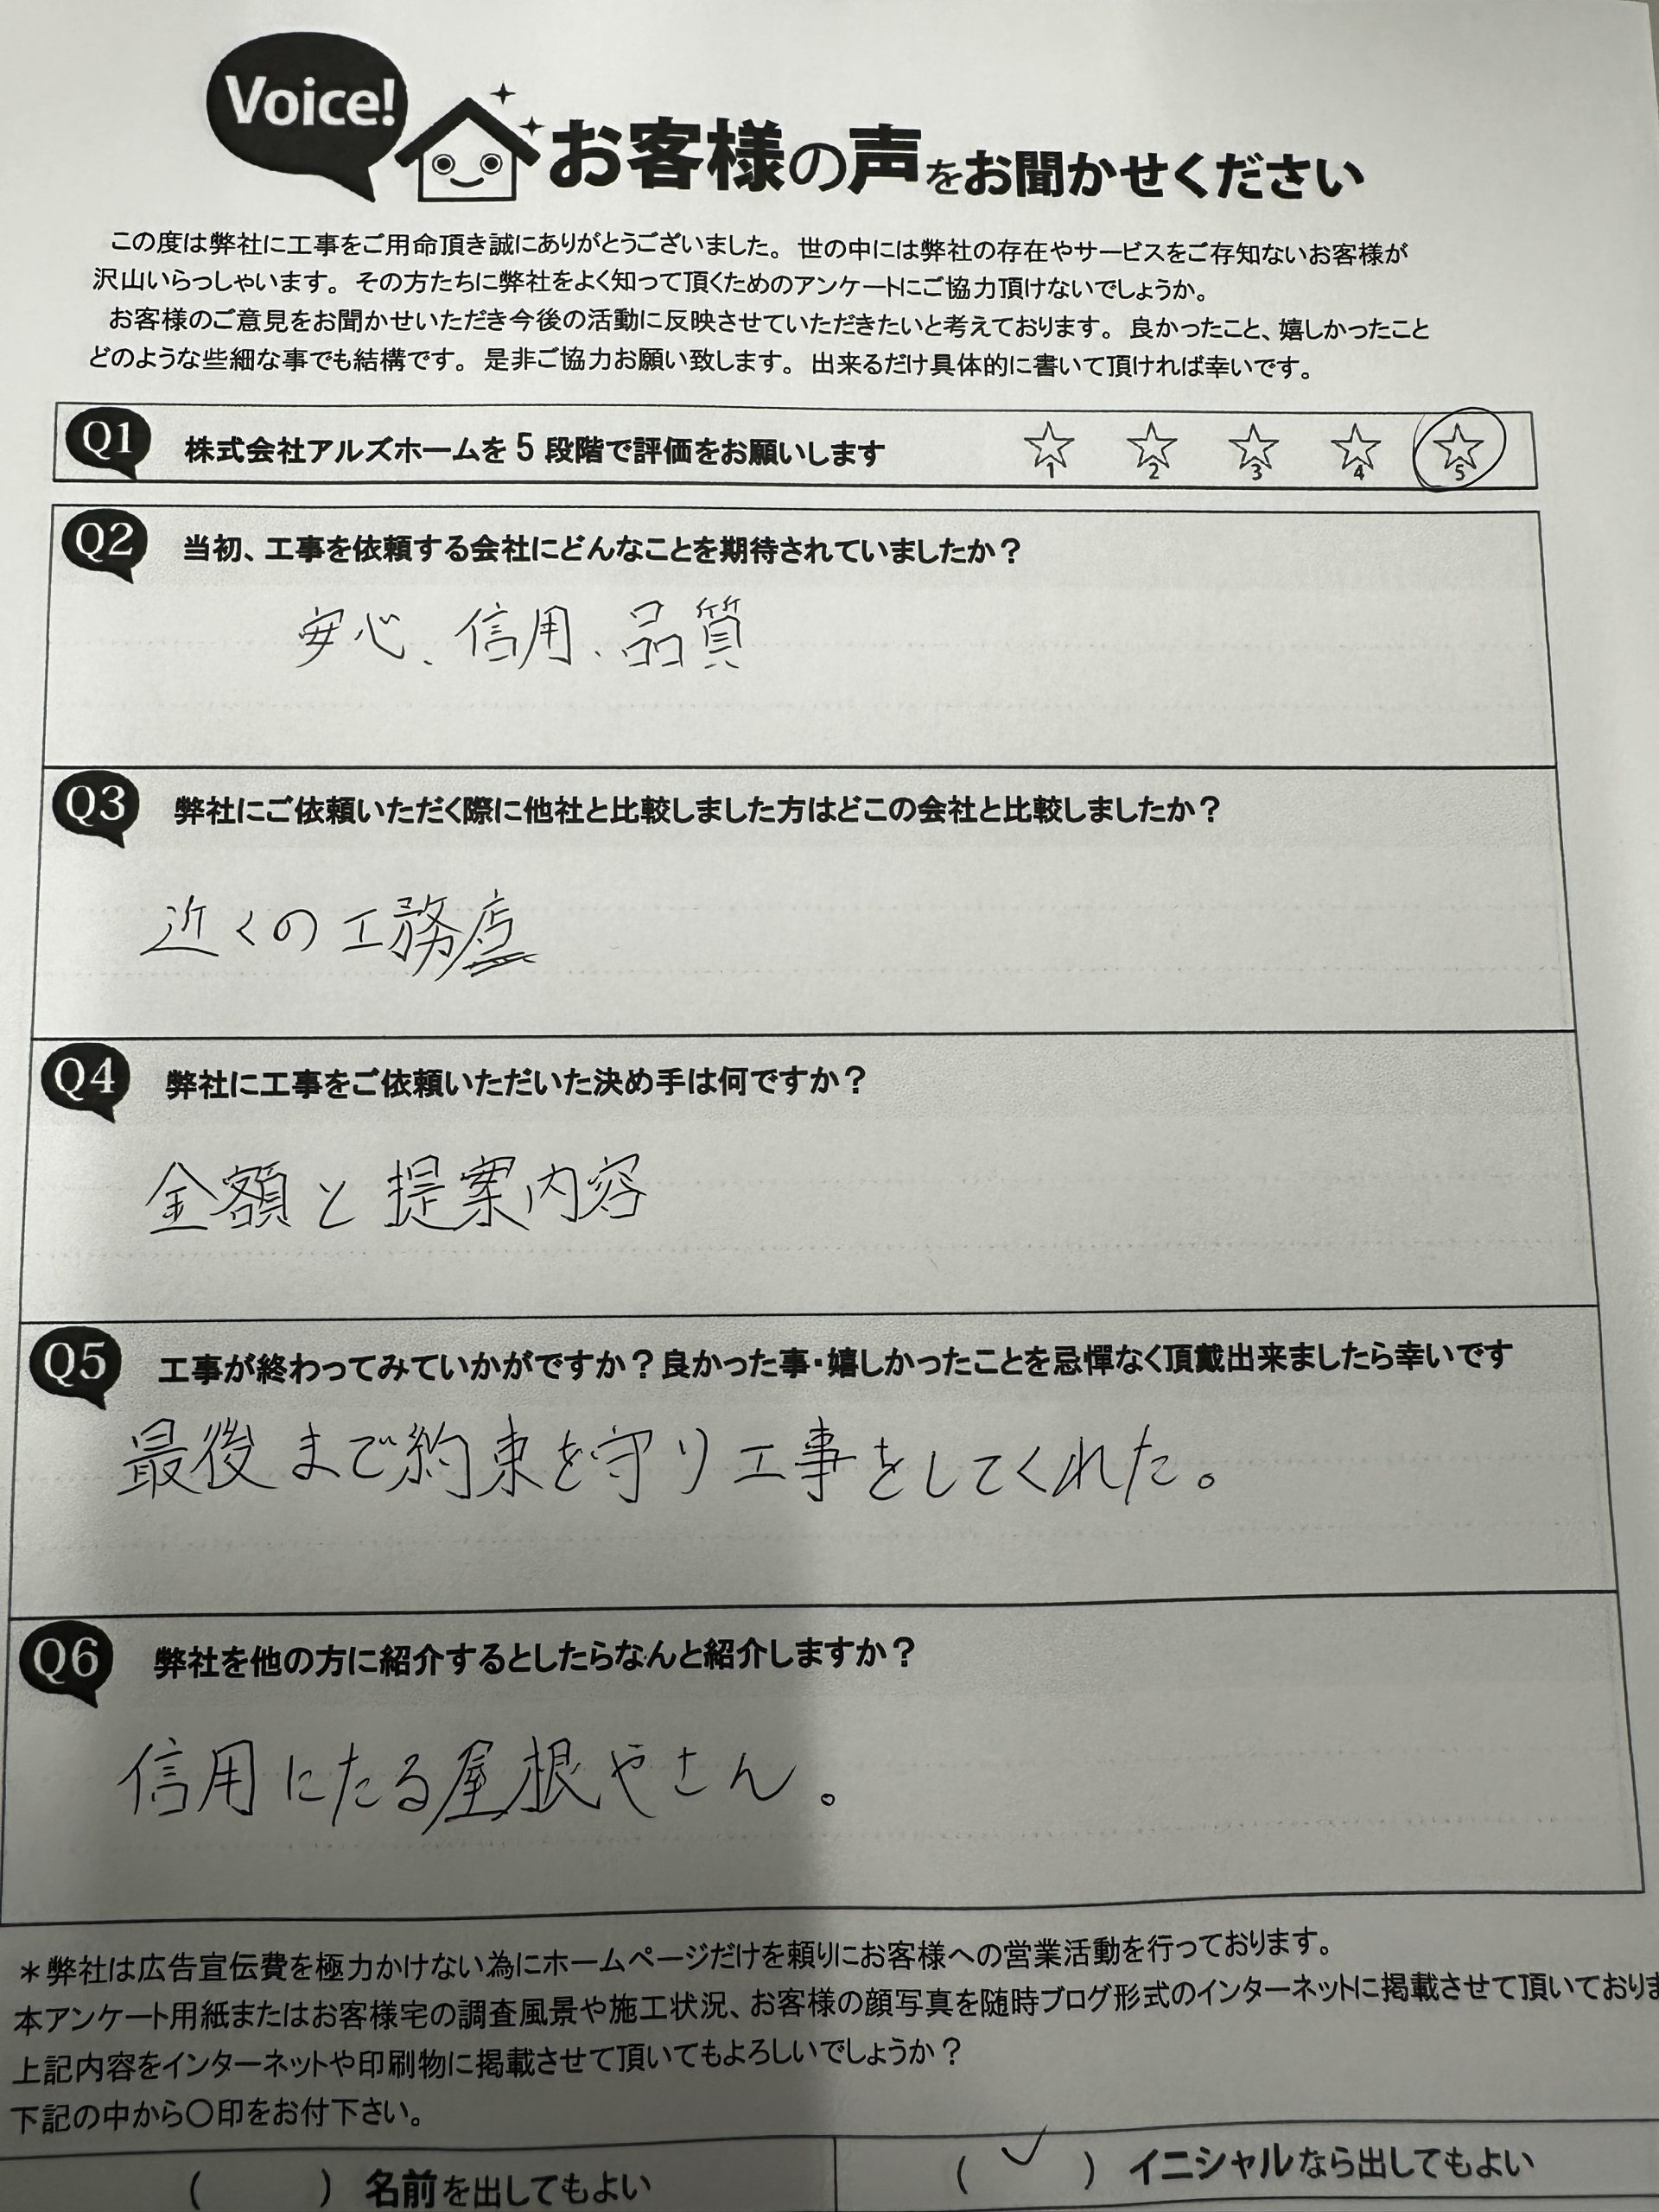 Voice!
お客様の声をお聞かせください
この度は弊社に工事をご用命頂き誠にありがとうございました。世の中には弊社の存在やサービスをご存知ないお客様が
沢山いらっしゃいます。その方たちに弊社をよく知って頂くためのアンケートにご協力頂けないでしょうか。
お客様のご意見をお聞かせいただき今後の活動に反映させていただきたいと考えております。良かったこと、嬉しかったこと
どのような些細な事でも結構です。是非ご協力お願い致します。出来るだけ具体的に書いて頂ければ幸いです。
Q1 株式会社アルズホームを5段階で評価をお願いします ☆1 ☆2 ☆3 ☆4 ☆5
Q2 当初、工事を依頼する会社にどんなことを期待されていましたか?
安心、信用、品質
Q3 弊社にご依頼いただく際に他社と比較しました方はどこの会社と比較しましたか?
近くの工務店
Q4 弊社に工事をご依頼いただいた決め手は何ですか?
金額と提案内容
Q5 工事が終わってみていかがですか?良かった事・嬉しかったことを忌憚なく頂戴出来ましたら幸いです
最後まで約束を守り工事をしてくれた。
Q6 弊社を他の方に紹介するとしたらなんと紹介しますか?
信用にたる屋根やさん。
*弊社は広告宣伝費を極力かけない為にホームページだけを頼りにお客様への営業活動を行っております。
本アンケート用紙またはお客様宅の調査風景や施工状況、お客様の顔写真を随時ブログ形式のインターネットに掲載させて頂いておりま
上記内容をインターネットや印刷物に掲載させて頂いてもよろしいでしょうか?
下記の中から〇印をお付下さい。
( ) 名前を出してもよい (✓) イニシャルなら出してもよい